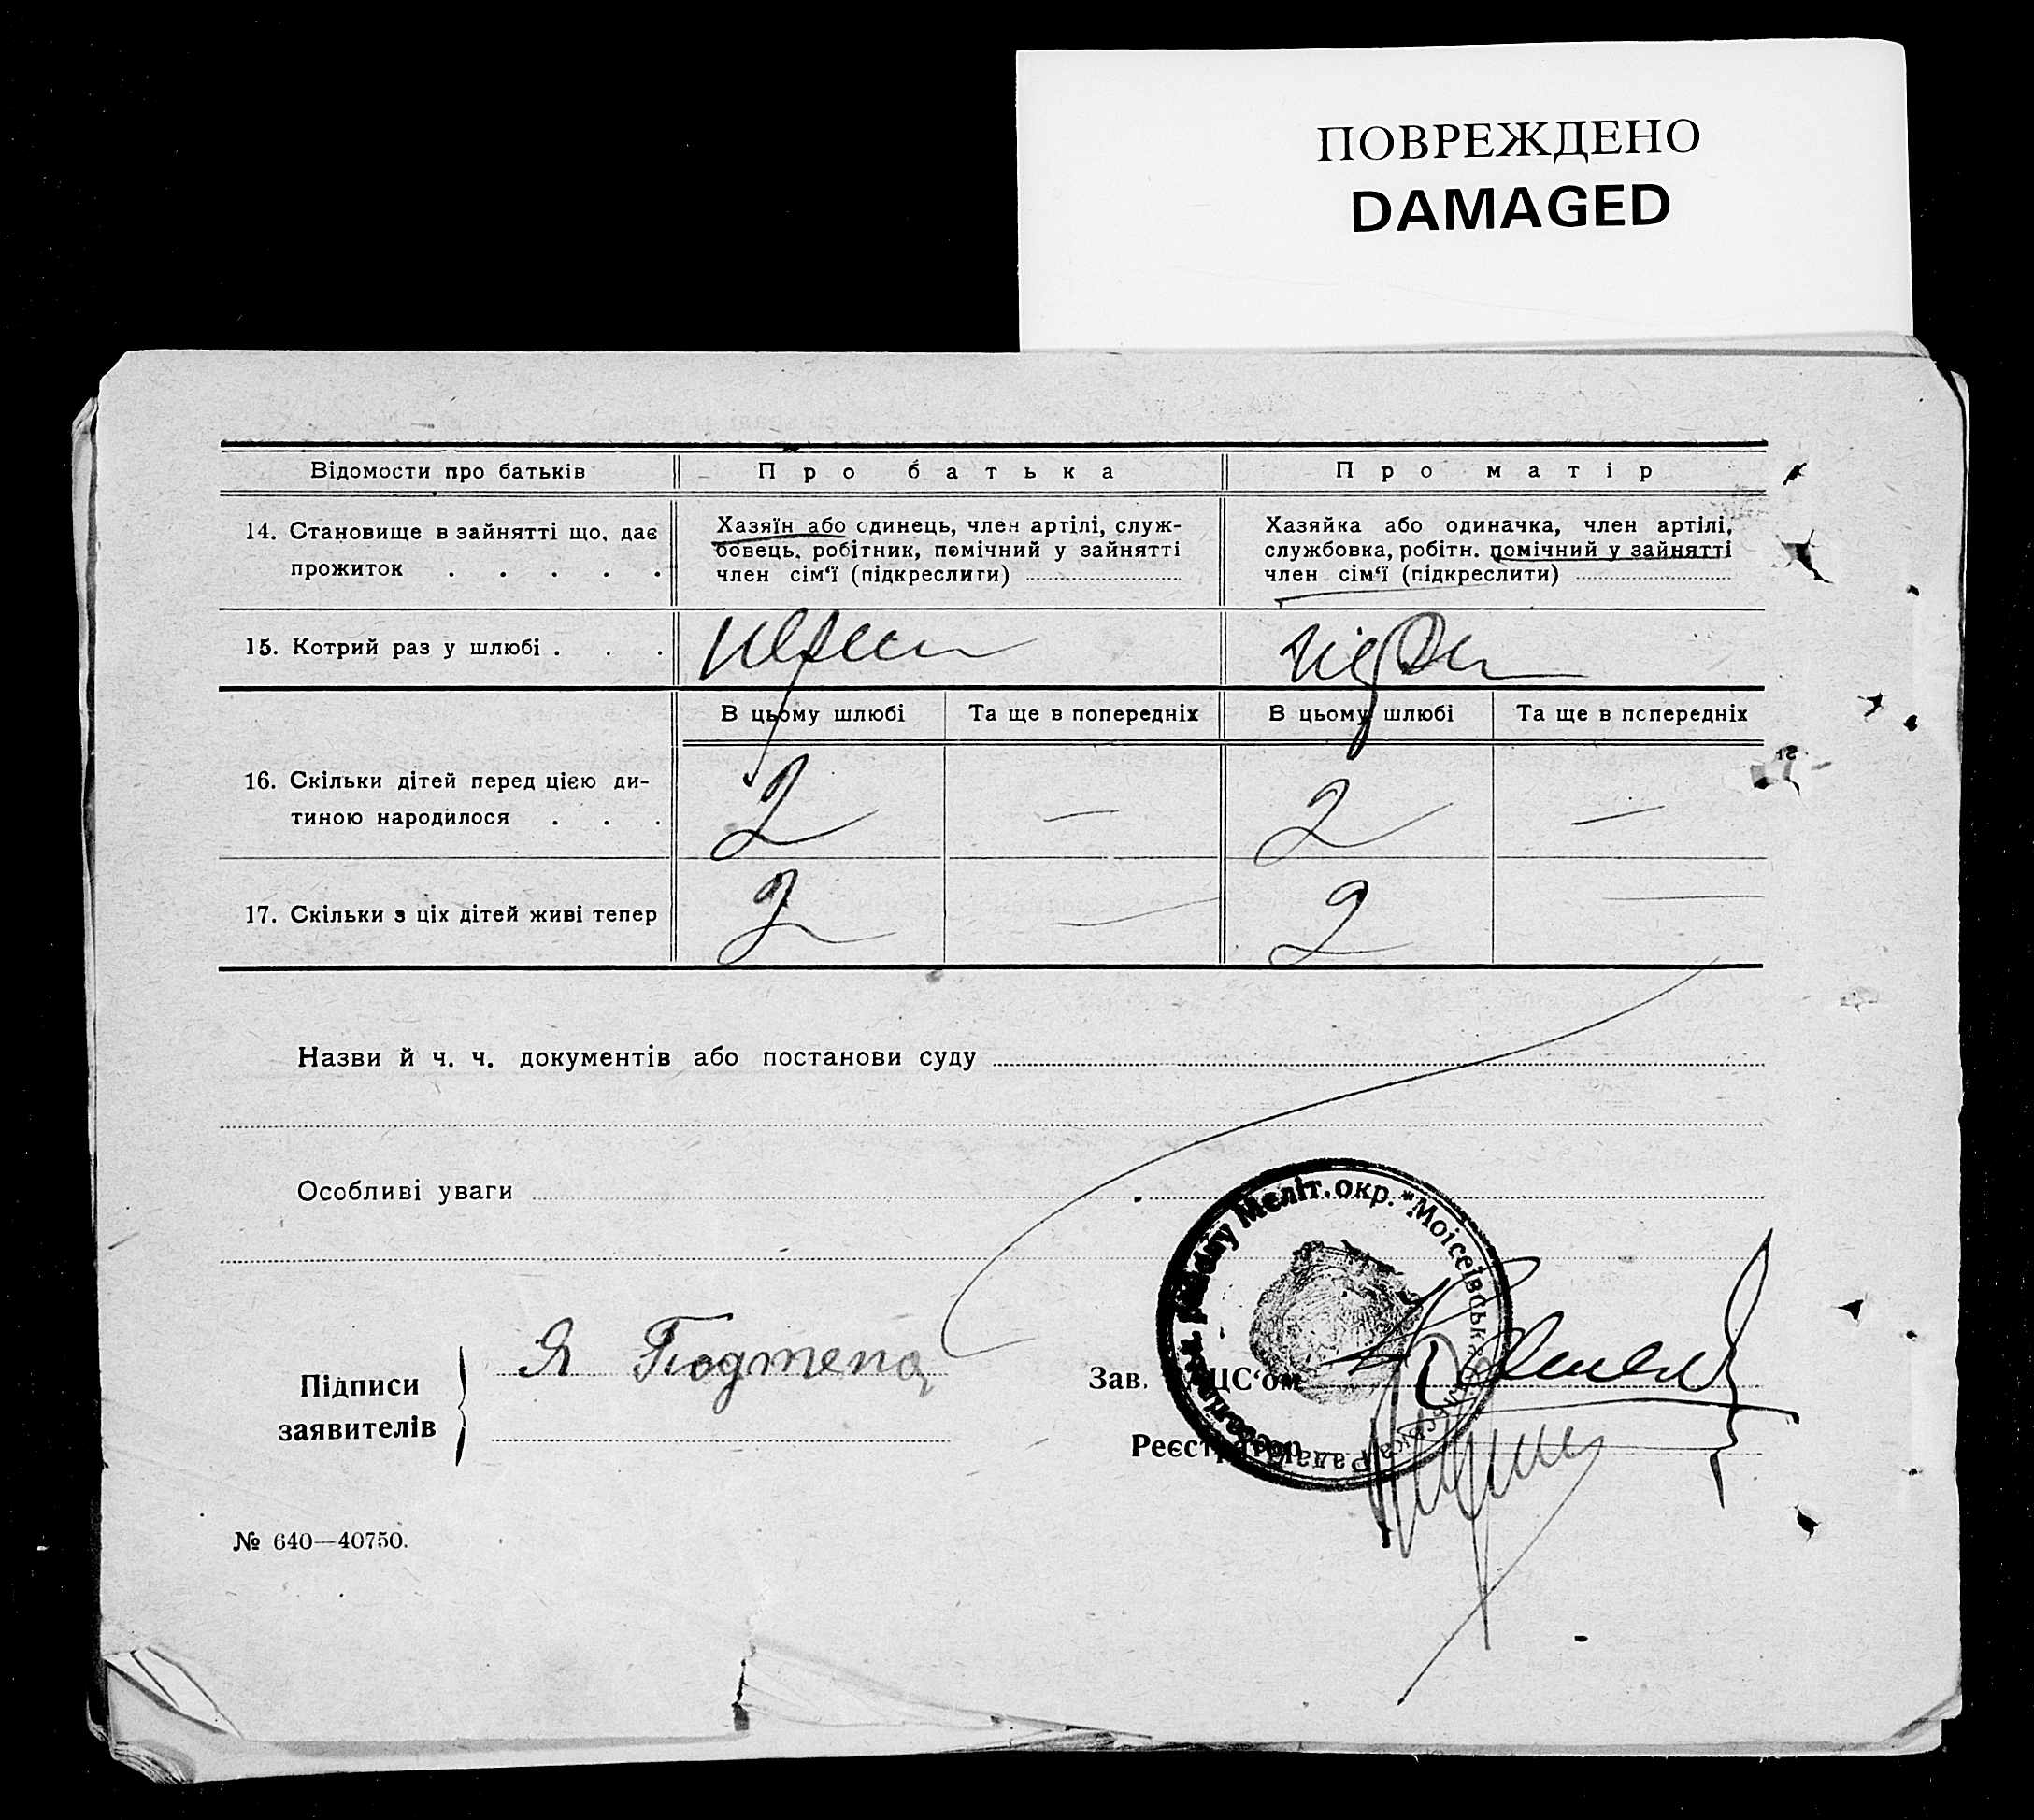 ПОВРЕЖДЕНО
DAMAGED
Відомости про батьків
Про батька
Про матір
14. Становище в зайнятті що, дає
прожиток . . . . .
Хазяїн або одинець, член артілі, служ-
бовець, робітник, помічний у зайнятті
член сім‘ї (підкреслити)
Хазяйка або одиначка, член артілі,
службовка, робітн. помічний у зайнятті
член сім‘ї (підкреслити)
15. Котрий раз у шлюбі . . .
В цьому шлюбі
Та ще в попередніх
В цьому шлюбі
Та ще в попередніх
16. Скільки дітей перед цією ди-
тиною народилося . . .
2
—
2
—
17. Скільки з ціх дітей живі тепер
2
—
2
—
Назви й ч. ч. документів або постанови суду
Особливі уваги
Меліт. окр. * Моісеівськ Рада
Підписи
заявителів
Я
Зав. ЦС‘ом
Реєстратор
№ 640—40750.